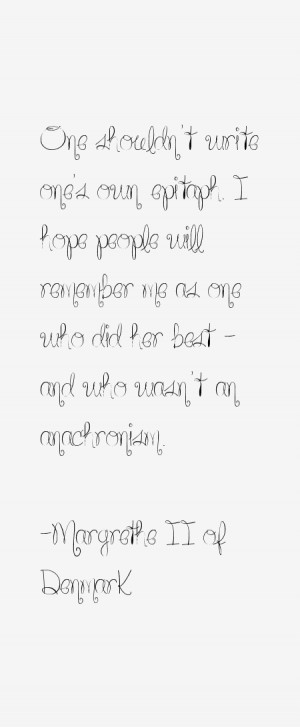 One shouldn't write
one's own epitaph. I
hope people will
remember me as one
who did her best -
and who wasn't an
anachronism.
-Margrethe II of
Denmark